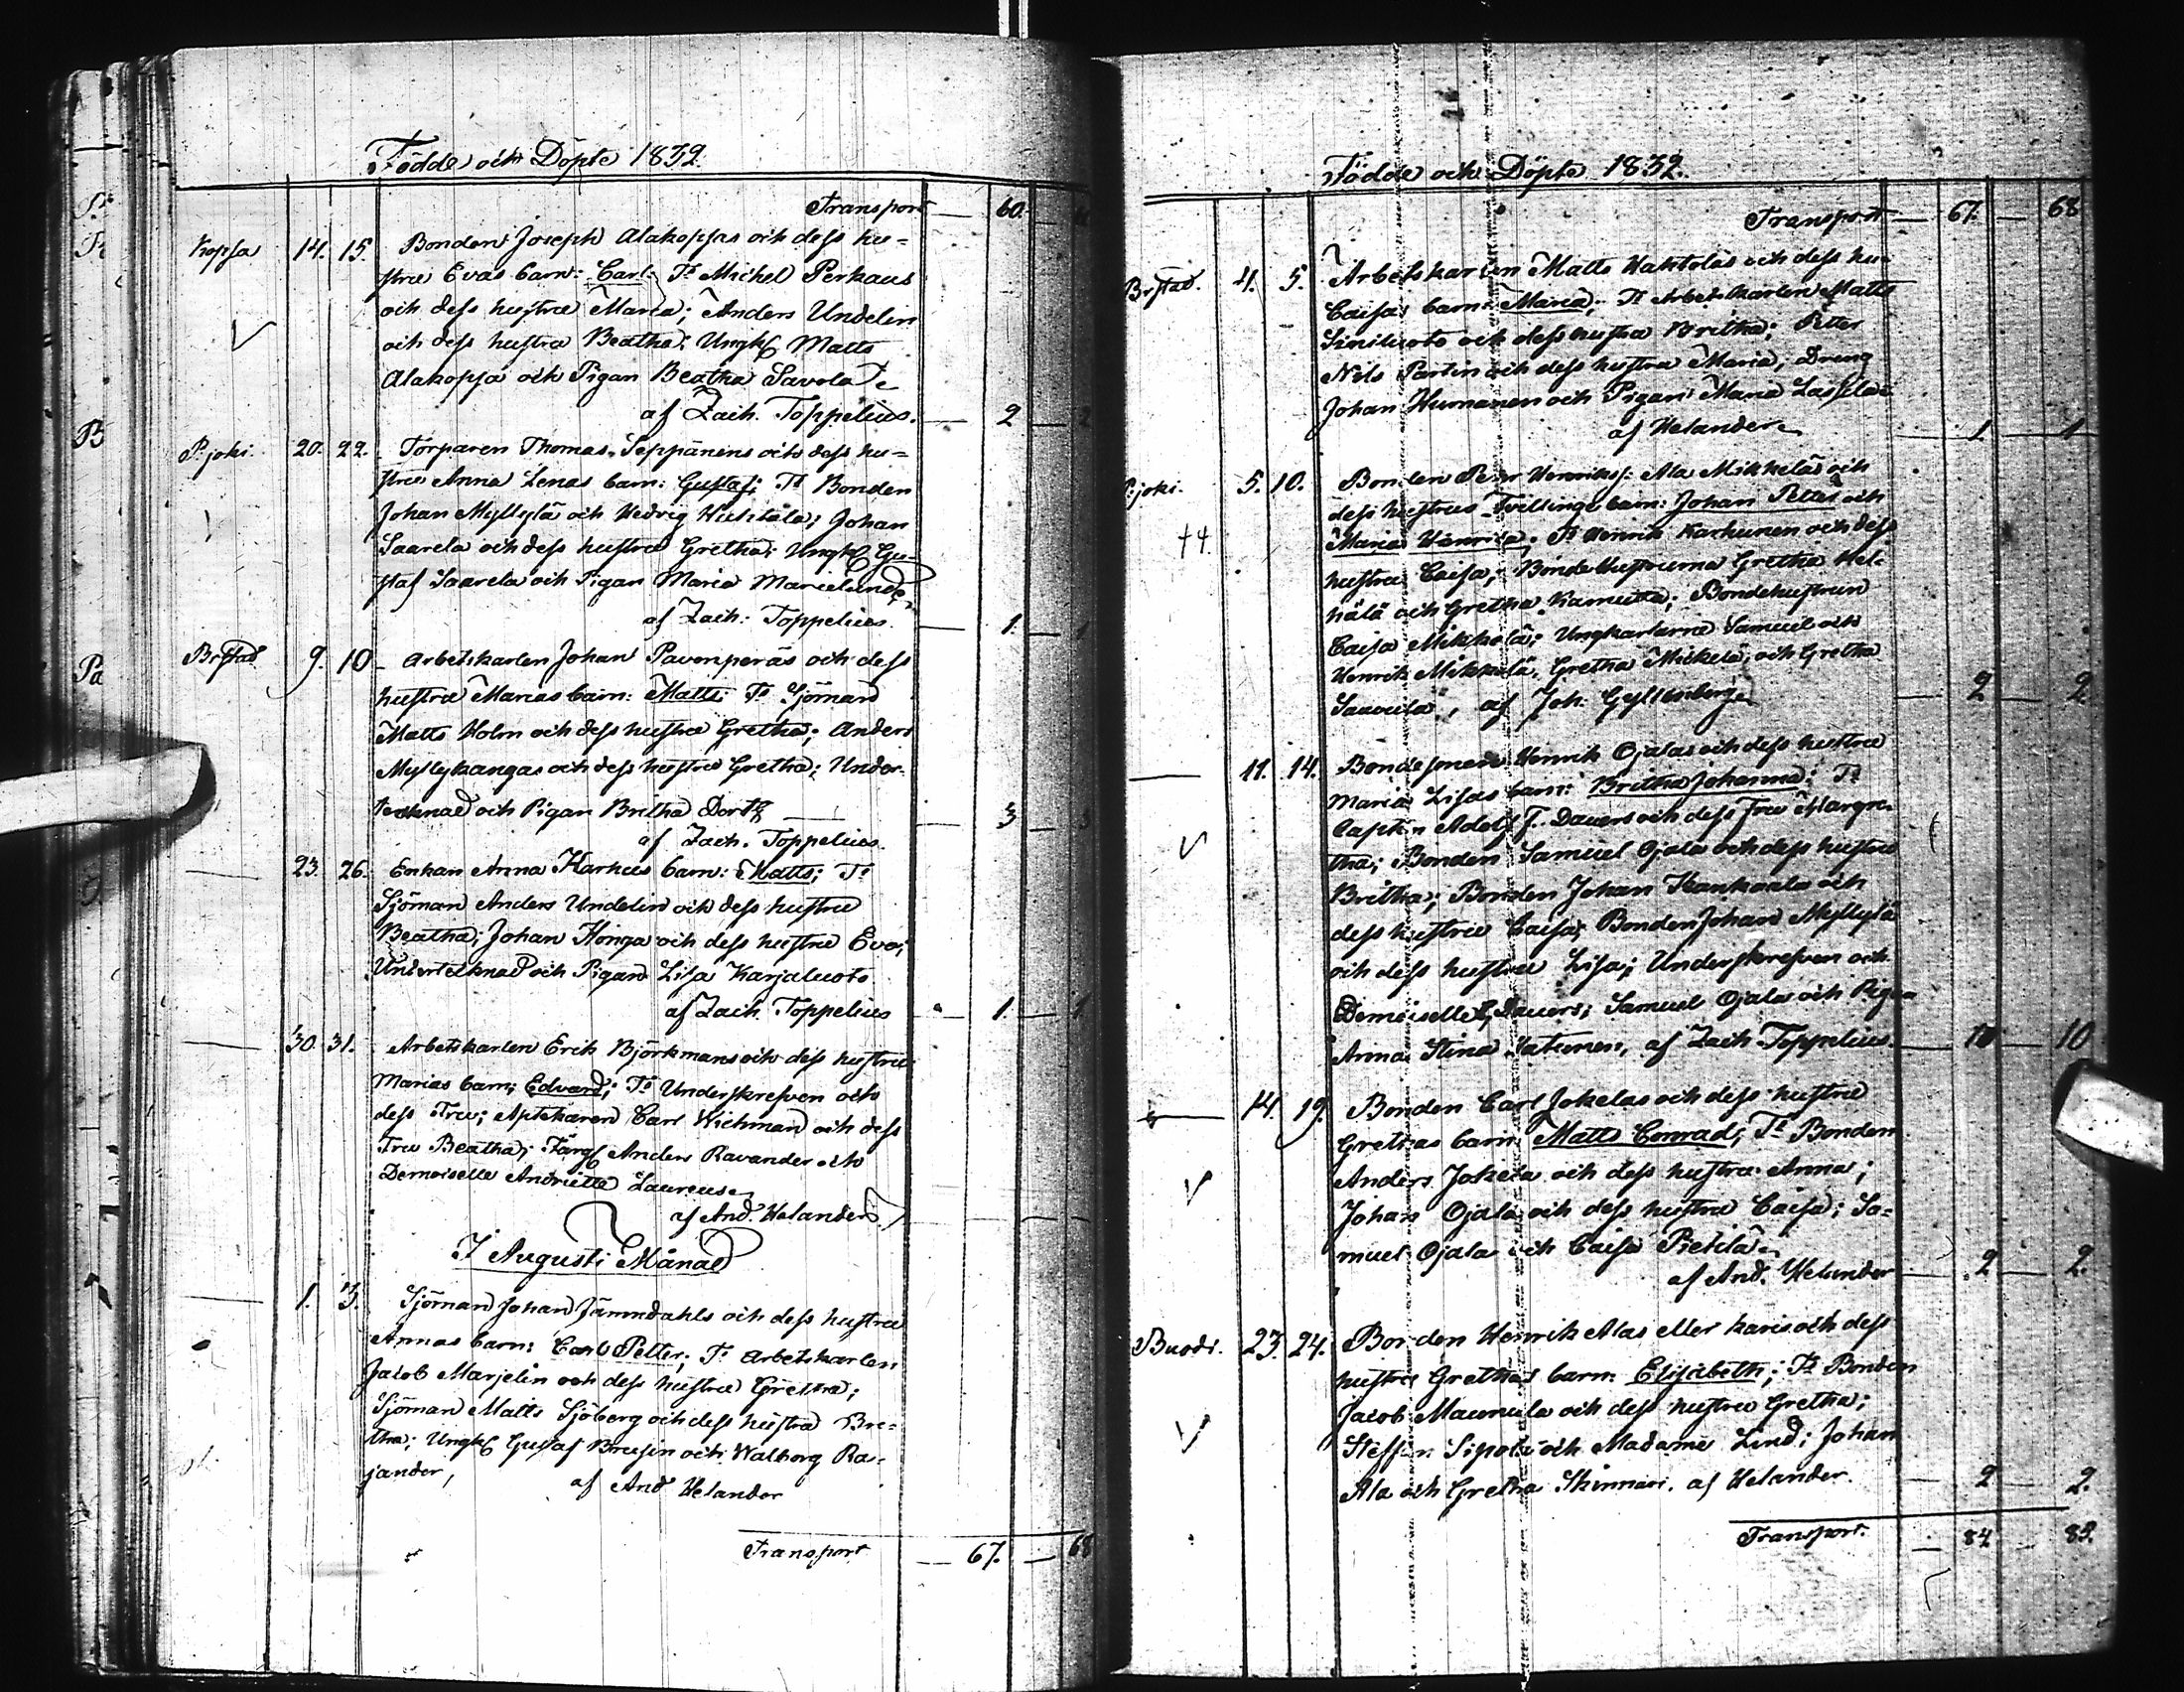 Födde och Döpte 1832
Transport 60.
Kopsa 14. 15. Bonden Joseph Alakopsas och dess hu=
stru Evas barn: Carl; Ts Michel Perkaus
och dess hustru Maria; Anders Undelin
och dess hustru Beatha; Ungk. Matts
Alakopsa och Pigan Beatha Savola
af Zach. Toppelius. 2 2
P.joki. 20. 22. Torparen Thomas Seppänens och dess hu=
stru Anna Lenas barn: Gustaf; Ts Bonden
Johan Myllylä och Hedvig Huhtala; Johan
Saarela och dess hustru Gretha; Ungk. Gu=
staf Saarela och Pigan Maria Marielund
af Zach. Toppelius. 1. 1
Brstad 9. 10 Arbetskarlen Johan Pavenperäs och dess
hustru Marias barn: Matts; Ts Sjöman
Matts Holm och dess hustru Gretha; Anders
Myllykangas och dess hustru Gretha; Under-
tecknad och Pigan Britha
af Zach. Toppelius. 3 3
23. 26. Enkan Anna Karhus barn: Matts; Ts
Sjöman Anders Undelin och dess hustru
Beatha; Johan Honga och dess hustru Eva;
Undertecknad och Pigan Lisa Karjaluoto
af Zach. Toppelius 1. 1
30. 31. Arbetskarlen Erik Björkmans och dess hustru
Marias barn: Edvard; Ts Underskrefven och
dess Fru; Aptekaren Carl Wichman och dess
Fru Beatha; Färg. Anders Ravander och
Demoiselle Andriette Laureus
af And. Helander
I Augusti Månad
1. 3. Sjöman Johan Jämndahls och dess hustru
Annas barn: Carl Petter; Ts Arbetskarlen
Jacob Marjelin och dess hustru Gretha;
Sjöman Matts Sjöberg och dess hustru Bri=
tha; Ungk. Gustaf Brusin och Walborg Ra-
jander,
af And Helander
Transport 67. 68
Födde och Döpte 1832.
Transport 67. 68
Brstad. 4. 5. Arbetskarlen Matts Hahtolas och dess hu-
Caisas barn: Maria; Ts Arbetskarlen Matts
Siniluoto och dess hustru Britha; Petter
Nils Partin och dess hustru Maria; Dreng
Johan Humanen och Pigan Maria Lassila
af Helander 1 1
P.joki. 5. 10. Bonden Petter Henrikss: Ala Mikkeläs och
dess hustrus Tvillinge barn: Johan Petter och
Maria Henrica; Ts Henrik Karhunen och dess
hustru Caisa; Bonde Hustrurna Gretha
och Gretha; Bondehustrun
Caisa Mikkola; Ungkarlarne Samuel och
Henrik Mikkelä, Gretha Mickelä, och Gretha
af Joh. Gyllenberg 2 2
11. 14. Bondesonen Henrik Ojalas och dess hustru
Maria Lisas barn: Britha Johanna; Ts
Capt:n Adolf F. Dauers och dess Fru Margre-
tha; Bonden Samuel Ojala och dess hustru
Britha; Bonden Johan Kankaala och
dess hustru Caisa; Bonden Johan Myllylä
och dess hustru Lisa; Underskrefven och
Demoiselle Dauers; Samuel Ojala och Pigan
Anna Stina af Zach Toppelius. 10 10
14. 19. Bonden Carl Jokelas och dess hustru
Grethas barn: Matts Conrad; Ts Bonden
Anders Jokela och dess hustru Anna;
Johan Ojala och dess hustru Caisa; Sa=
muel Ojala och Caisa Pietilä
af And. Helander 2 2.
23. 24. Bonden Henrik Alas eller Karis och dess
hustru Grethas barn: Elisabeth; Ts Bonden
Jacob Maunula och dess hustru Gretha;
Steffan Sipola och Madame Lind; Johan
Ala och Gretha Skinnari. af Helander. 2 2.
Transport. 84 85.